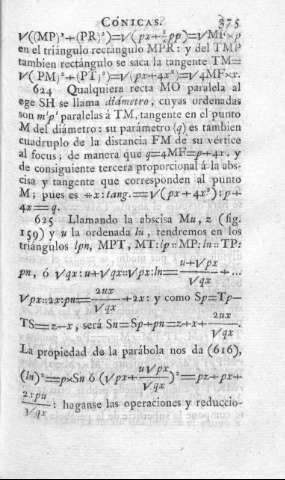 CÓNICAS. 375
√((MP)²+(PR)²)=√(px+¼pp)=√MF×p
en el triángulo rectángulo MPR: y del TMP
tambien rectángulo se saca la tangente TM=
√(PM)²+(PT)²)=√(px+4x²)=√4MF×x.
624 Qualquiera recta MO paralela al
ege SH se llama diámetro; cuyas ordenadas
son m'p' paralelas á TM, tangente en el punto
M del diámetro: su parámetro (q) es tambien
cuadruplo de la distancia FM de su vértice
al focus; de manera que q=4MF=p+4x, y
de consiguiente tercera proporcional á la abs-
cisa y tangente que corresponden al punto
M; pues es ÷x:tang.=√(px+4x²):p+
4x=q.
625 Llamando la abscisa Mu, z (fig.
159) y u la ordenada lu, tendremos en los
triángulos lpn, MPT, MT:lp::MP:ln::TP:
pn, ó √qx:u+√qx::√px:ln=(u√px)/(√qx)+...
√px::2x:pn=(2ux)/(√qx)+2x: y como Sp=Tp—
TS=z—x, será Sn=Sp+pn=z+x+(2ux)/(√qx).
La propiedad de la parábola nos da (616),
(ln)²=p×Sn ó (√px+(u√px)/(√qx))²=pz+px+
(2xpu)/(√qx): haganse las operaciones y reduccio-